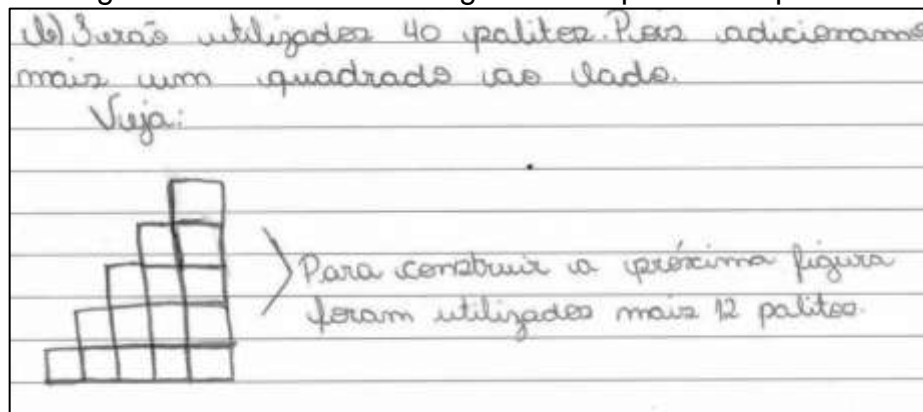 b) Serão utilizados 40 palitos. Pois adicionamos
mais um quadrado ao lado.
Veja:
Para construir a próxima figura
foram utilizados mais 12 palitos.